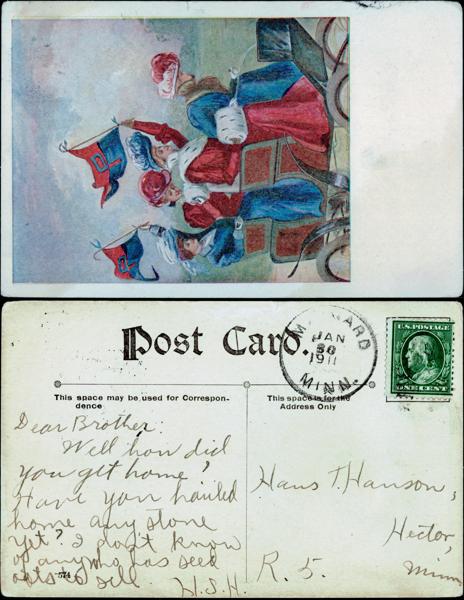 Post Card.
MAYNARD
JAN
30
1911
MINN.
U.S. POSTAGE
ONE CENT
This space may be used for Correspon-
dence
This space is for the
Address Only
Dear Brother:
Well how did
you get home?
Have you hauled
home any stone
yet? I don't know
of any who has seed
oats to sell.
H.S.H.
574
Hans T. Hanson,
Hector,
R. 5. Minn